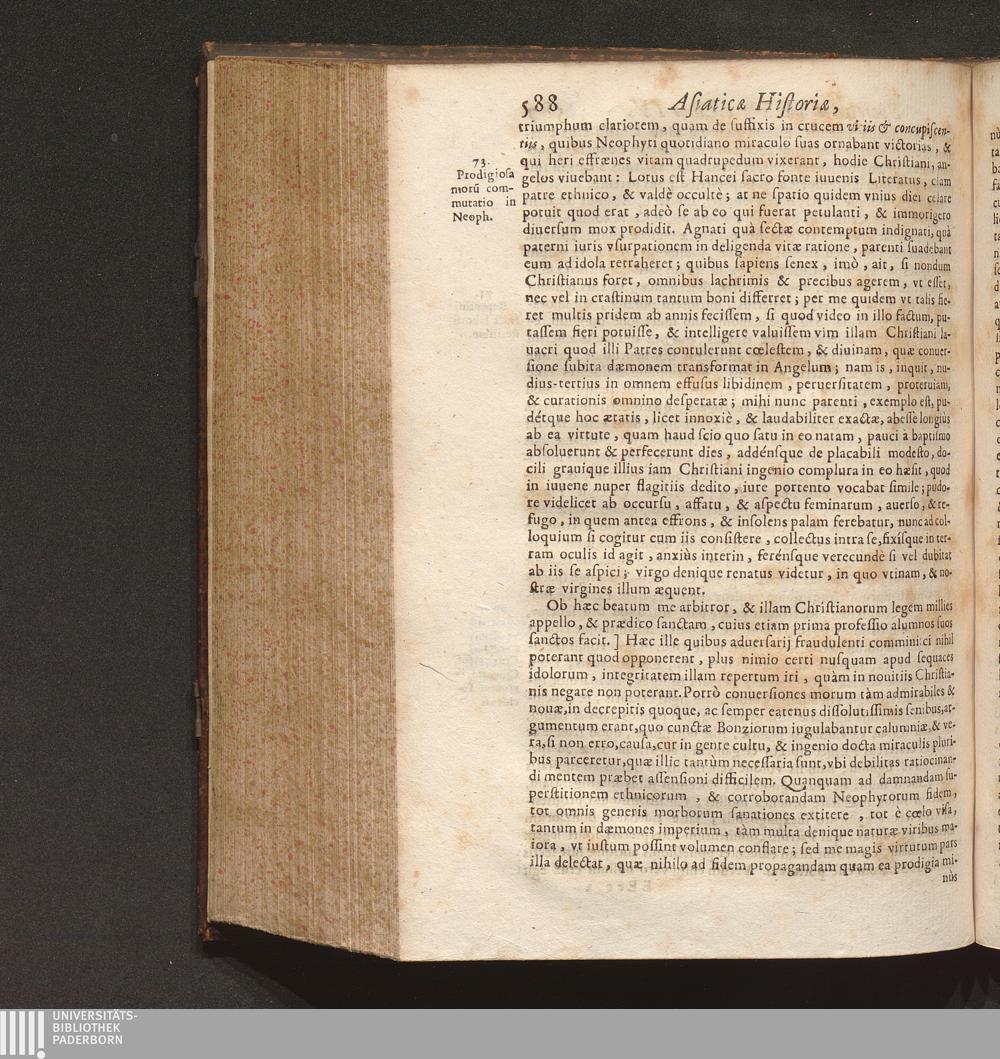 588 Aſiaticæ Hiſtoriæ,
triumphum clariorem, quam de ſuffixis in crucem vitiis & concupiſcen-
tiis, quibus Neophyti quotidiano miraculo ſuas ornabant victorias, &
qui heri effrænes vitam quadrupedum vixerant, hodie Chriſtiani, an-
73.
Prodigioſa
morũ com-
mutatio in
Neoph.
gelos viuebant: Lotus eſt Hancei ſacro fonte iuuenis Literatus, clam
patre ethnico, & valdè occultè; at ne ſpatio quidem vnius diei celare
potuit quod erat, adeò ſe ab eo qui fuerat petulanti, & immorigero
diuerſum mox prodidit. Agnati quà ſectæ contemptum indignati, quà
paterni iuris vſurpationem in deligenda vitæ ratione, parenti ſuadebant
eum ad idola retraheret; quibus ſapiens ſenex, imò, ait, ſi nondum
Chriſtianus foret, omnibus lachrimis & precibus agerem, vt eſſet,
nec vel in craſtinum tantum boni differret; per me quidem vt talis fie-
ret multis pridem ab annis feciſſem, ſi quod video in illo factum, pu-
taſſem fieri potuiſſe, & intelligere valuiſſem vim illam Chriſtiani la-
uacri quod illi Patres contulerunt cœleſtem, & diuinam, quæ conuer-
ſione ſubita dæmonem transformat in Angelum; nam is, inquit, nu-
dius-tertius in omnem effuſus libidinem, peruerſitatem, proteruiam,
& curationis omnino deſperatæ; mihi nunc parenti, exemplo eſt, pu-
détque hoc ætatis, licet innoxiè, & laudabiliter exactæ, abeſſe longiùs
ab ea virtute, quam haud ſcio quo ſatu in eo natam, pauci à baptiſmo
abſoluerunt & perfecerunt dies, addénſque de placabili modeſto, do-
cili grauíque illius iam Chriſtiani ingenio complura in eo hæſit, quod
in iuuene nuper flagitiis dedito, iure portento vocabat ſimile; pudo-
re videlicet ab occurſu, affatu, & aſpectu feminarum, auerſo, & re-
fugo, in quem antea effrons, & inſolens palam ferebatur, nunc ad col-
loquium ſi cogitur cum iis conſiſtere, collectus intra ſe, fixiſque in ter-
ram oculis id agit, anxiùs interin, ferénſque verecundè ſi vel dubitat
ab iis ſe aſpici; virgo denique renatus videtur, in quo vtinam, & no-
ſtræ virgines illum æquent.
Ob hæc beatum me arbitror, & illam Chriſtianorum legem millies
appello, & prædico ſanctam, cuius etiam prima profeſſio alumnos ſuos
ſanctos facit.] Hæc ille quibus aduerſarij fraudulenti comminiſci nihil
poterant quod opponerent, plus nimio certi nuſquam apud ſequaces
idolorum, integritatem illam repertum iri, quàm in nouitiis Chriſtia-
nis negare non poterant. Porrò conuerſiones morum tàm admirabiles &
nouæ, in decrepitis quoque, ac ſemper eatenus diſſolutiſſimis ſenibus, ar-
gumentum erant, quo cunctæ Bonziorum iugulabantur calumniæ, & ve-
ra, ſi non erro, cauſa, cur in gente cultu, & ingenio docta miraculis pluri-
bus parceretur, quæ illic tantùm neceſſaria ſunt, vbi debilitas ratiocinan-
di mentem præbet aſſenſioni difficilem. Quanquam ad damnandam ſu-
perſtitionem ethnicorum, & corroborandam Neophytorum fidem,
tot omnis generis morborum ſanationes extitere, tot è cœlo viſa,
tantum in dæmones imperium, tàm multa denique naturæ viribus ma-
iora, vt iuſtum poſſint volumen conflare; ſed me magis virtutum pars
illa delectat, quæ nihilo ad fidem propagandam quam ea prodigia mi-
nùs
UNIVERSITÄTS-
BIBLIOTHEK
PADERBORN